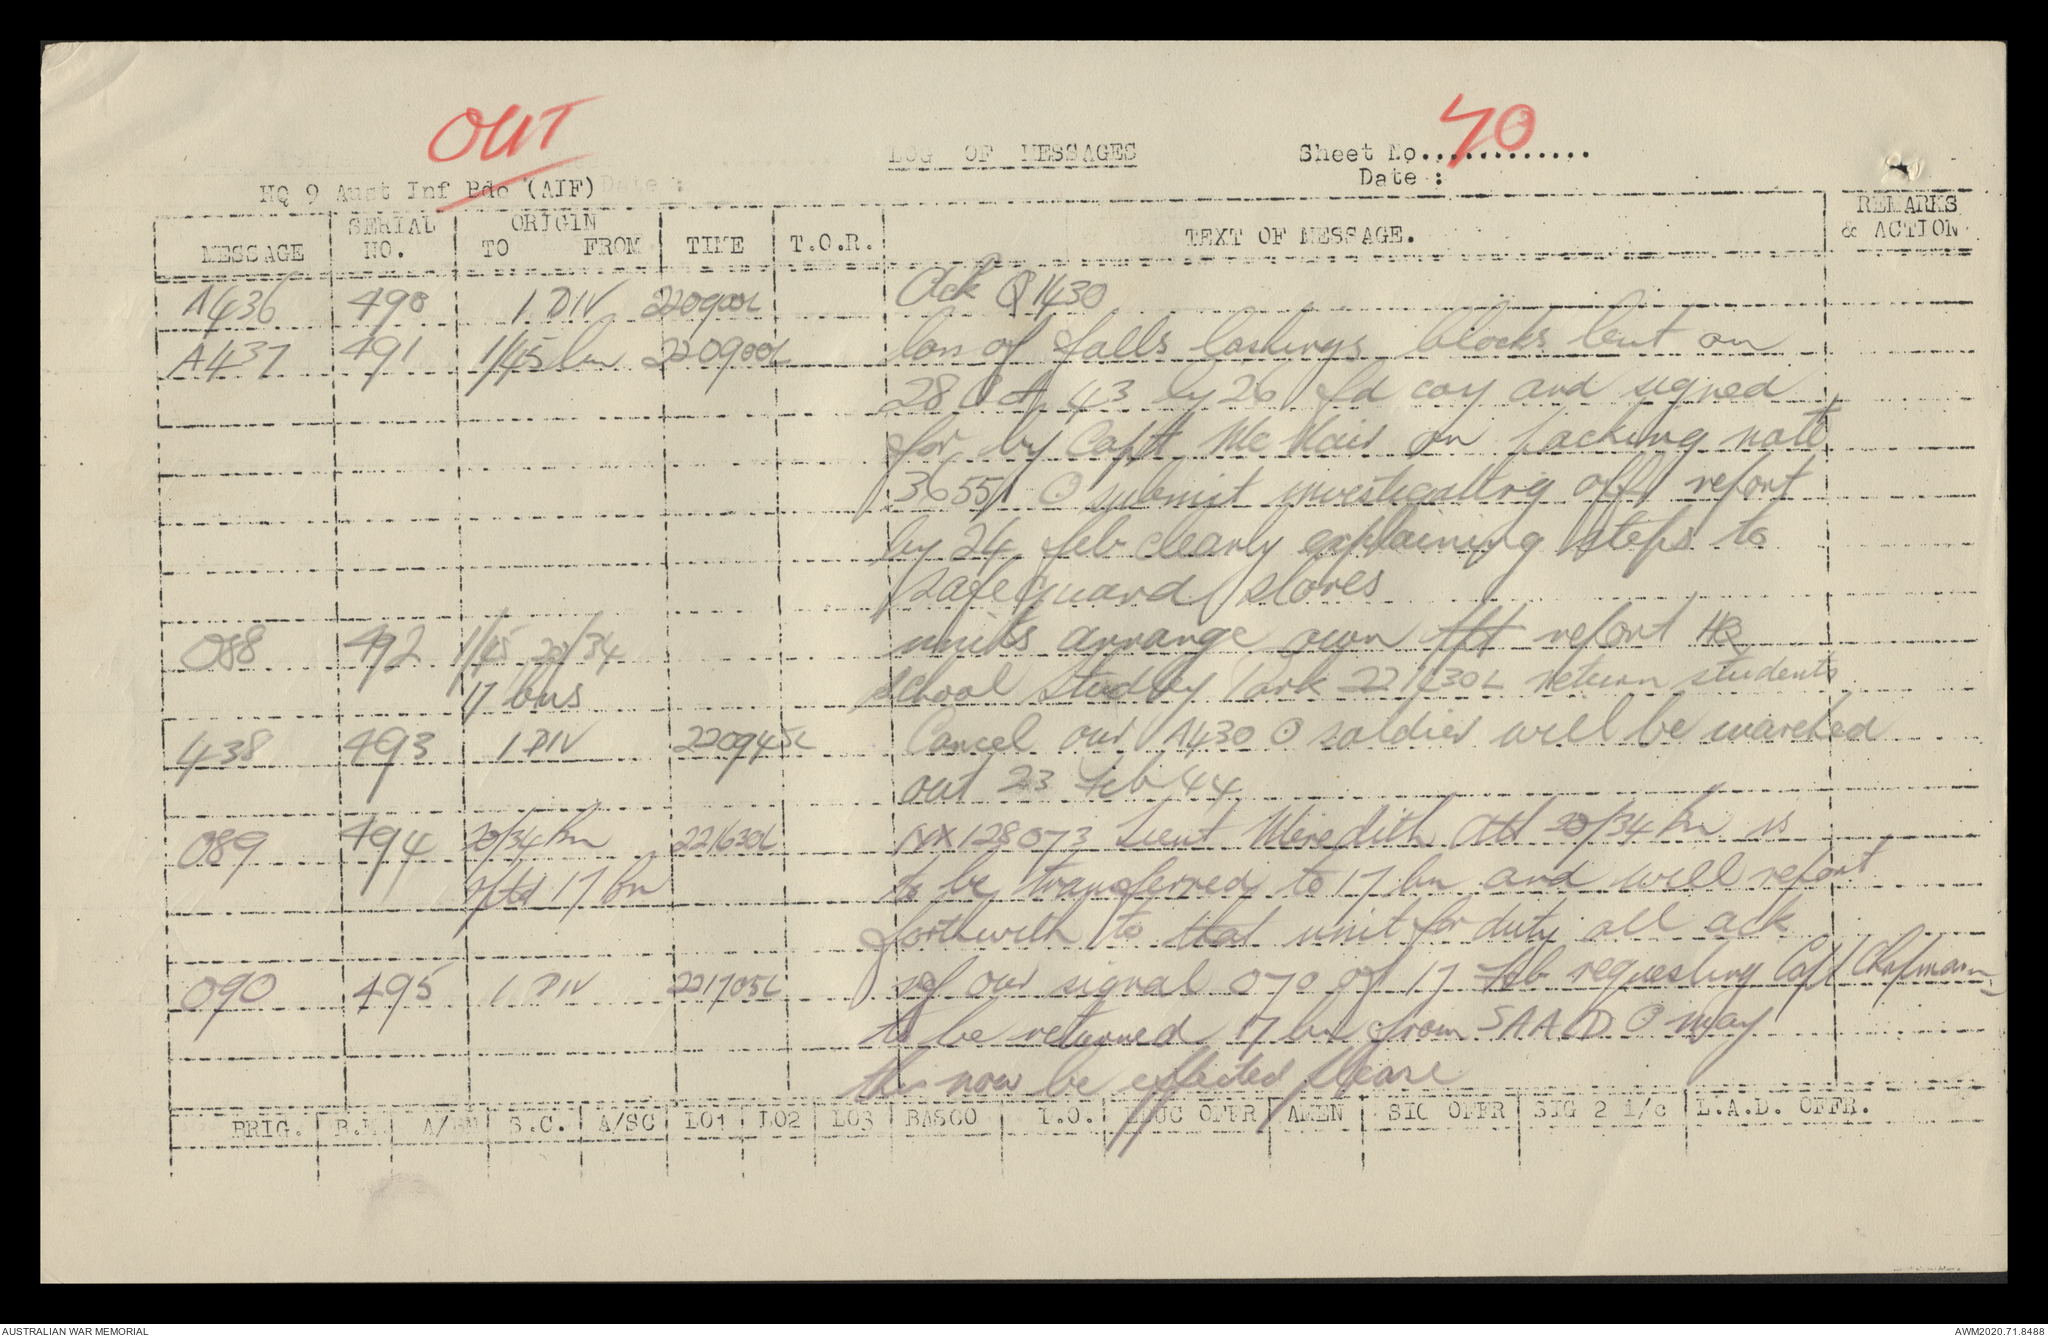 OUT
70
LOG OF MESSAGES Sheet No.............
Date :
HQ 9 Aust Inf Bde (AIF) Date :
MESSAGE SERIAL NO. ORIGIN TO FROM TIME T.O.R. TEXT OF MESSAGE. REMARKS & ACTION
A436 490 1 DIV 220900L Ack Q1430
A437 491 1/45 bn 220900L loss of falls lashings blocks lent on
28 Oct 43 by 26 fd coy and signed
for by Capt McNair on packing note
36551 ⊙ submit investigating offr report
by 24 feb clearly explaining steps to
safeguard stores
O88 492 1/45 20/34 units arrange own tpt report HQ
17 bns school Studley Park 221630L return students
438 493 1 DIV 220945L Cancel our A430 ⊙ soldier will be marched
out 23 Feb 44
O89 494 20/34 bn 221630L NX128073 Lieut Meredith att 20/34 bn is
rptd 17 bn to be transferred to 17 bn and will report
forthwith to that unit for duty all ack
O90 495 1 DIV 221705L ref our signal O70 of 17 Feb requesting Capt Chapman
to be returned 17 bn from SAAD ⊙ may
this now be effected please
BRIG. B.M. A/BM S.C. A/SC LO1 LO2 LO3 BASCO I.O. EDUC OFFR AMEN SIG OFFR SIG 2 i/c L.A.D. OFFR.
AUSTRALIAN WAR MEMORIAL AWM2020.71.8488